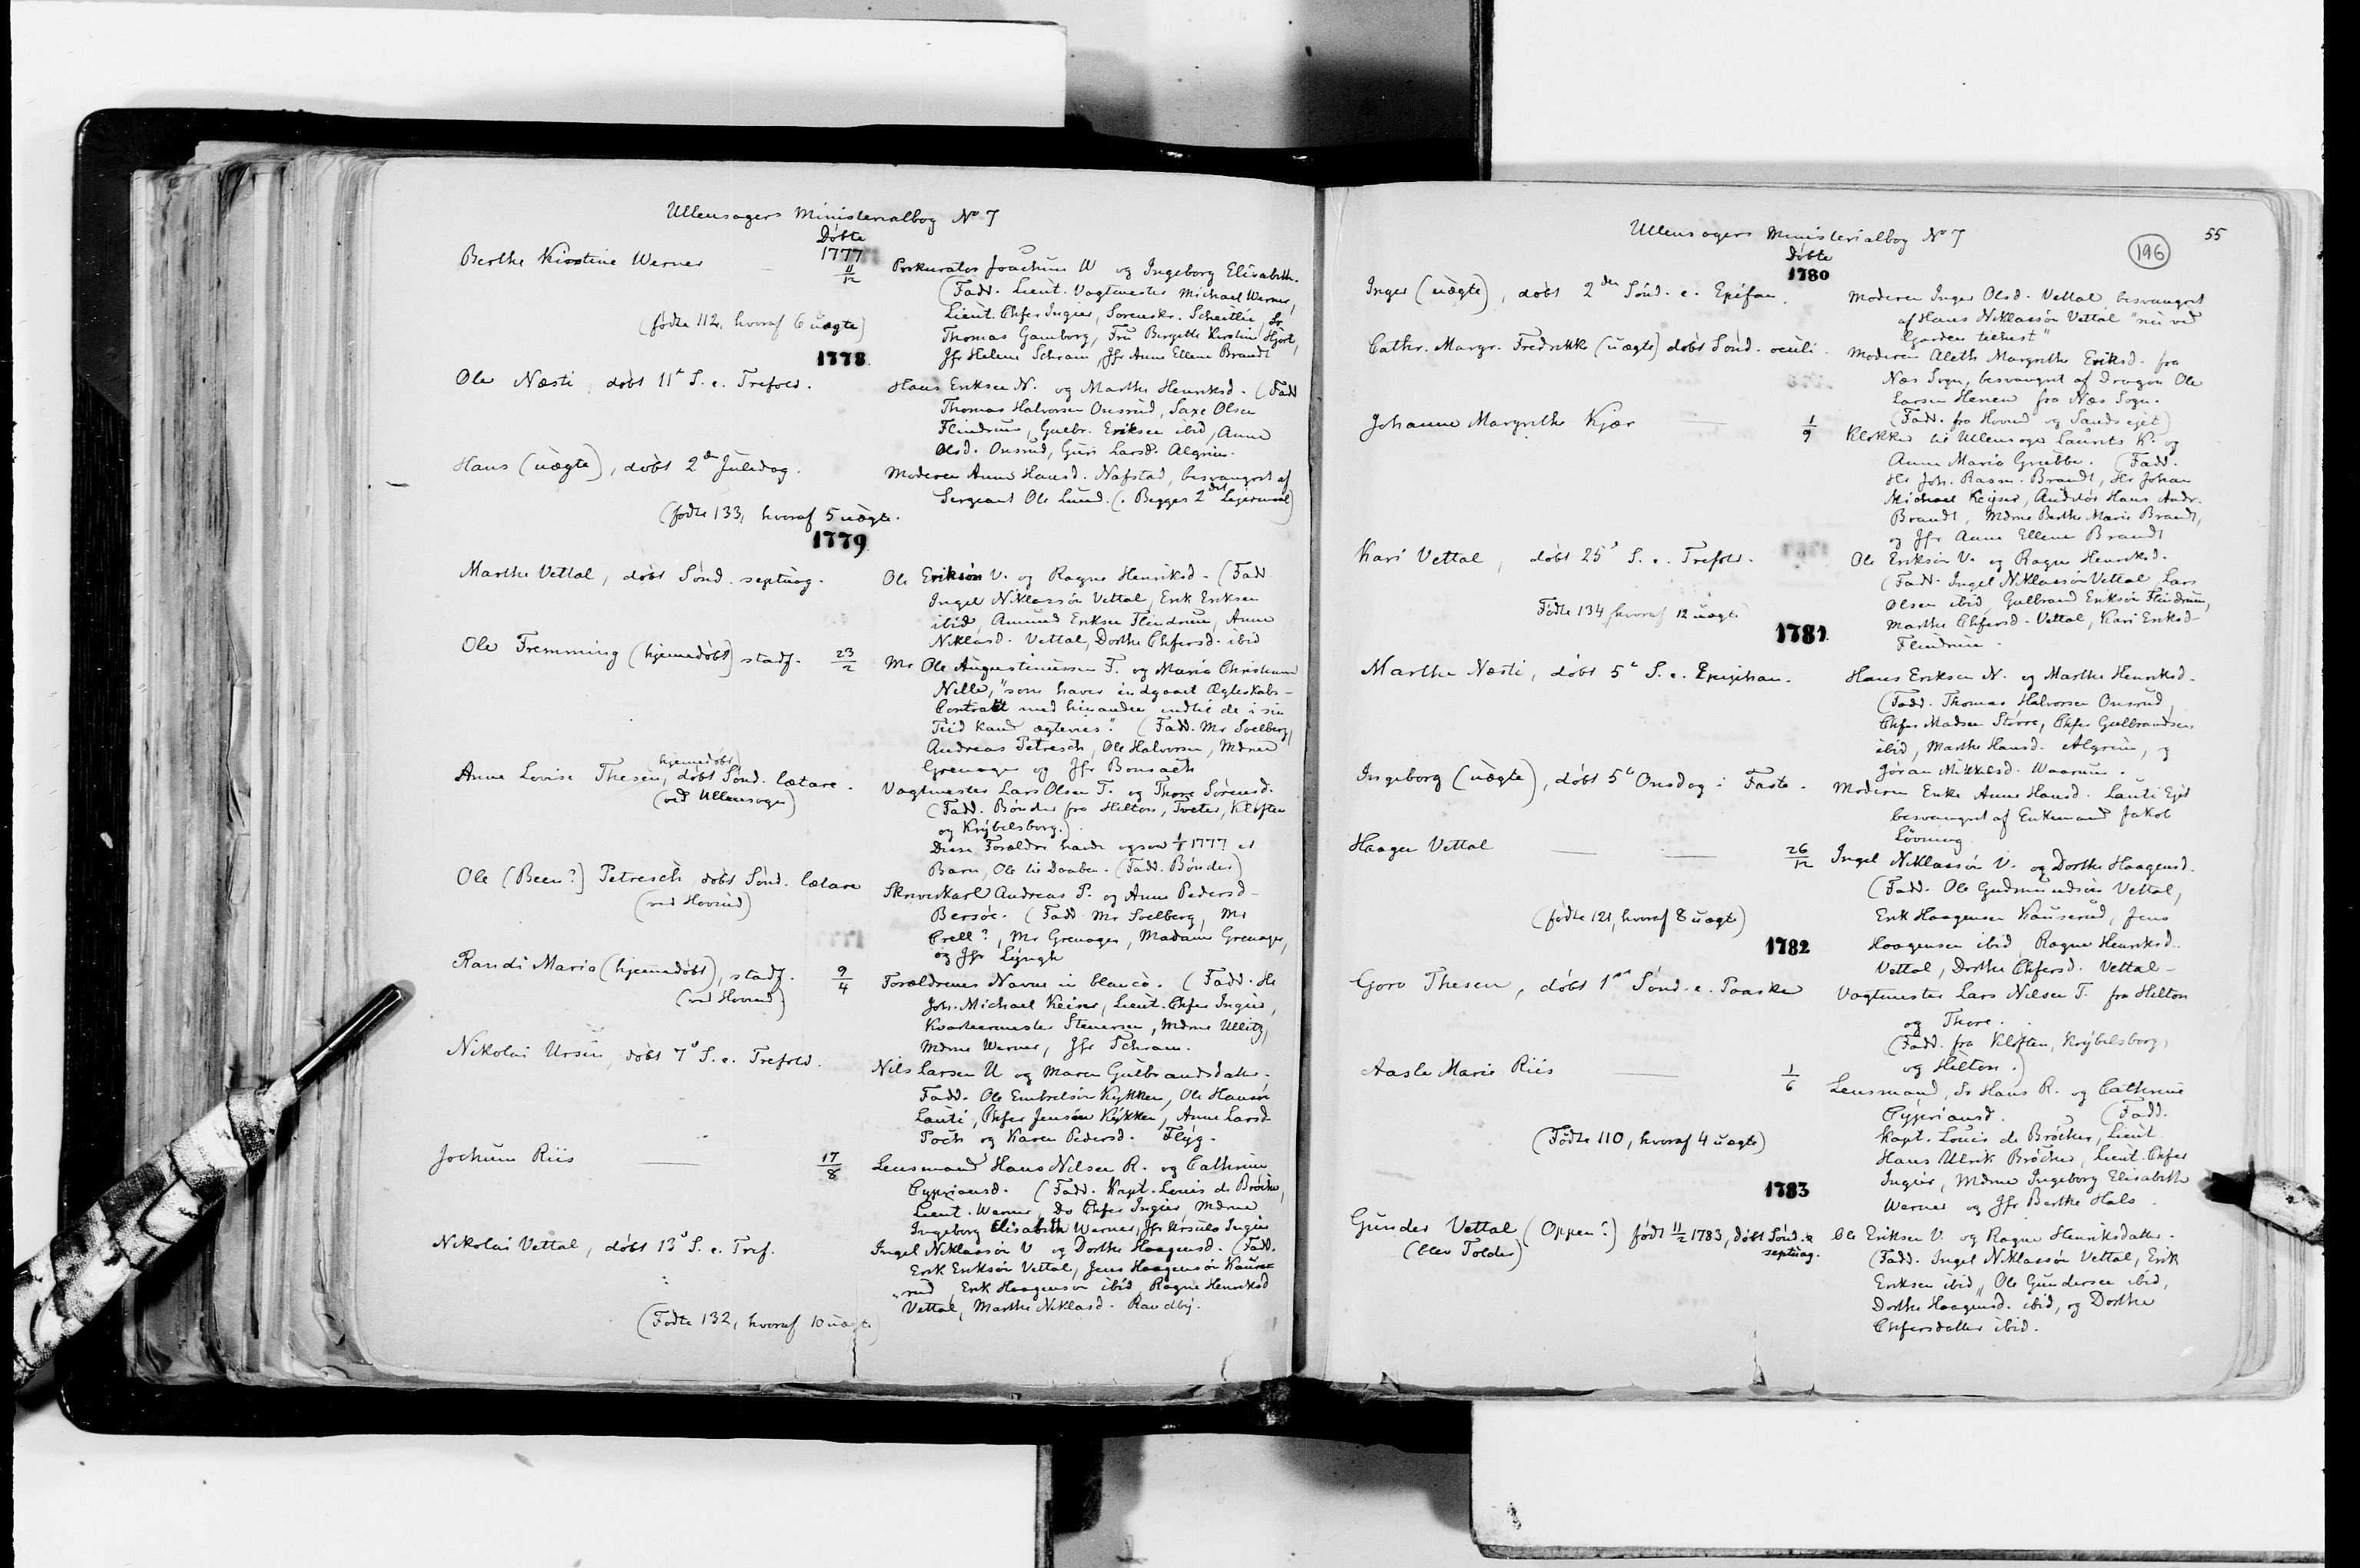 Ullensagers Ministerialbog No 7
Døbte
1777
Berthe Kirstine Werner 11/12 Prokurator Joachum W og Ingeborg Elisabeth.
(Fadd. Lieut. Vagtmester Michael Werner,
Lieut. Chfer Ingier, Sorenskr. Scheitlie, Sr
(fødte 112, hvoraf 6 uægte)
Thomas Gamborg, Fru Birgitte Kirstine Hjort,
Jfr Helene Schram, Jfr Anne Ellene Brandt
1778
Ole Næsti, døbt 11te S. e. Trefold.
Hans Eriksen N. og Marthe Henriksd. (Fadd
Thomas Halvorsen Onsrud, Saxe Olsen
Flindrum, Gulbr. Eriksen ibid, Anne
Olsd. Onsrud, Guri Larsd. Algrim.
Hans (uægte), døbt 2den Juledag.
Moderen Anne Hansd. Nafstad, besvangret af
Sergeant Ole Lund. (. Begges 2det Lejermaal)
(fødte 133, hvoraf 5 uægte.
1779
Marthe Vettal, døbt Sønd. septuag.
Ole Eriksøn V. og Ragne Henriksd. (Fadd
Ingel Niklassøn Vettal, Erik Eriksen
ibid, Amund Eriksen Flindrum, Anne
Niklasd. Vettal, Dorthe Chfersd. ibid
Ole Fremming (hjemmedøbt) stadf. 23/2 Mr Ole Augustinussen F. og Maria Christiane
Nelle, "som haver indgaaet Ægteskabs-
Contrakt med hinanden indtil de i sin
Tiid kand ægtevies". (Fadd. Mr Soelberg,
Andreas Petresch, Ole Halvorsen, Mdme
Grenager og Jfr Bonsach
hjemmedøbt
Anne Lovise Thesen, døbt Sønd. lætare.
(ved Ullensager)
Vagtmester Lars Olsen T. og Thore Sørensd.
(Fadd. Bønder fra Hilton, Tveter, Kløften
og Krybelsborg.)
Disse Forældre havde ogsaa 1777 et
Barn, Ole til Daaben. (Fadd. Bønder)
Ole (Been?) Petresch døbt Sønd. lætare
(ved Hovind)
Skriverkarl Andreas P. og Anne Pedersd
Bersøe. (Fadd Mr Soelberg, Mr
Crell?, Mr Grenager, Madame Grenager,
og Jfr Lyngh
Randi Maria (hjemmedøbt), stadf. 9/4
(ved Hovind)
Forældrenes Navne in blanco. (Fadd. Hr
Joh. Michael Keiser, Lieut. Chfer Ingier,
Kvartermester Stenersen, Mdme Ullitz,
Mdme Werner, Jfr Schram.
Nikolai Ursin, døbt 7de S. e. Trefold.
Nils Larsen U og Maren Gulbrandsdatter.
Fadd. Ole Embretsøn Kykken, Ole Hansøn
Lauti, Chfer Jensøn Kykken, Anne Larsd
Toch og Karen Pedersd. Flyg.
Jochum Riis 17/8 Lensmand Hans Nilsen R. og Cathrine
Cypriansd. (Fadd. Kapt. Louis de Brøcher,
Lieut. Werner, Do Chfer Ingier, Mdme
Ingeborg Elisabeth Werner, Jfr Ursula Ingier
Nikolai Vettal, døbt 13de S. e. Tref.
Ingel Niklassøn V og Dorthe Haagensd. (Fadd.
Erik Eriksøn Vettal, Jens Haagensøn Kause-
rud, Erik Haagensøn ibid, Ragne Henriksd
Vettal, Marthe Niklasd. Randby.
(Fødte 132, hvoraf 10 uægte)
Ullensagers Ministerialbog No 7
196
55
Døbte
1780
Inger (uægte), døbt 2den Sønd. e. Epifan.
Moderen Inger Olsd. Vettal, besvangret
af Hans Niklassøn Vettal "nu ved
Garden tienst"
Cathr. Margr. Fredrikke (uægte) døbt Sønd. oculi.
Moderen Aleth Margrethe Eriksd. fra
Næs Sogn, besvangret af Dragon Ole
Larsen Henen fra Næs Sogn.
(Fadd. fra Hovind og Sandsejet)
Johanne Margrethe Kjær 1/9 Klokker til Ullensager Laurits K. og
Anne Maria Grubbe. (Fadd.
Hr Joh. Rasm. Brandt, Hr Johan
Michael Keyser, Auditør Hans Andr.
Brandt, Mdme Berthe Marie Brandt,
og Jfr Anne Ellene Brandt
Kari Vettal, døbt 25de S. e. Trefold.
Ole Eriksøn V. og Ragne Henriksd.
(Fadd. Ingel Niklassøn Vettal, Lars
Olsen ibid, Gulbrand Eriksøn Flindrum,
Marthe Chfersd. Vettal, Kari Eriksd
Flindrum.
Fødte 134 hvoraf 12 uægte
1781
Marthe Næsti, døbt 5te S. e. Epiphan.
Hans Eriksen N. og Marthe Henriksd.
(Fadd. Thomas Halvorsen Onsrud,
Chfer Madsen Større, Chfer Gulbrandsen
ibid, Marthe Hansd. Algrim, og
Gjøran Mikkelsd. Waarum.
Ingeborg (uægte), døbt 5te Onsdag i Faste.
Moderen Enke Anne Hansd. Lauti Ejet
besvangret af Enkemand Jakob
Løvning
Haagen Vettal 26/12 Ingel Niklassøn V. og Dorthe Haagensd.
(Fadd. Ole Gudmundsøn Vettal,
Erik Haagensen Kauserud, Jens
Haagensen ibid, Ragne Henriksd.
Vettal, Dorthe Chfersd. Vettal
(fødte 121, hvoraf 8 uægte)
1782
Goro Thesen, døbt 1ste Sønd. e. Paaske
Vagtmester Lars Nilsen T. fra Hilton
og Thore.
(Fadd. fra Kløften, Krybelsborg,
og Hilton.)
Aasle Marie Riis 1/6 Lensmand, Sr Hans R. og Cathrine
Cypriansd. (Fadd.
Kapt. Louis de Brøcher, Lieut
Hans Ulrik Brøcher, Lieut. Chfer
Ingier, Mdme Ingeborg Elisabeth
Werner og Jfr Berthe Hals.
(Fødte 110, hvoraf 4 uægte)
1783
Gunder Vettal (Oppen?) født 11/2 1783, døbt Sønd.
septuag.
(blev Tolder)
Ole Eriksen V. og Ragne Henriksdatter.
(Fadd. Ingel Niklassøn Vettal, Erik
Eriksen ibid, Ole Gundersen ibid,
Dorthe Haagensd. ibid, og Dorthe
Chfersdatter ibid.